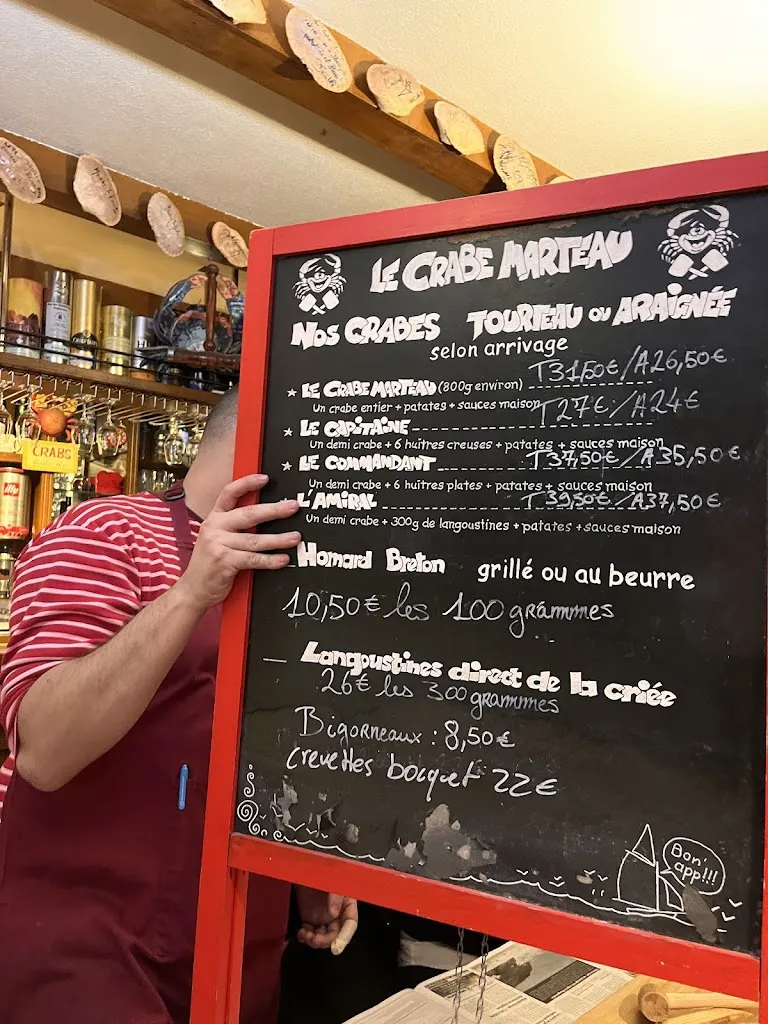 LE CRABE MARTEAU
NOS CRABES TOURTEAU OU ARAIGNÉE
selon arrivage
T31,50€/A26,50€
★ LE CRABE MARTEAU (800g environ)
Un crabe entier + patates + sauces maison
★ LE CAPITAINE T27€/A24€
Un demi crabe + 6 huîtres creuses + patates + sauces maison
★ LE COMMANDANT T37,50€/A35,50€
Un demi crabe + 6 huîtres plates + patates + sauces maison
L'AMIRAL T39,50€/A37,50€
Un demi crabe + 300g de langoustines + patates + sauces maison
Homard Breton grillé ou au beurre
10,50€ les 100 grammes
Langoustines direct de la criée
26€ les 300 grammes
Bigorneaux : 8,50€
crevettes bocquet 22€
Bon' app!!!
CRABS
illy